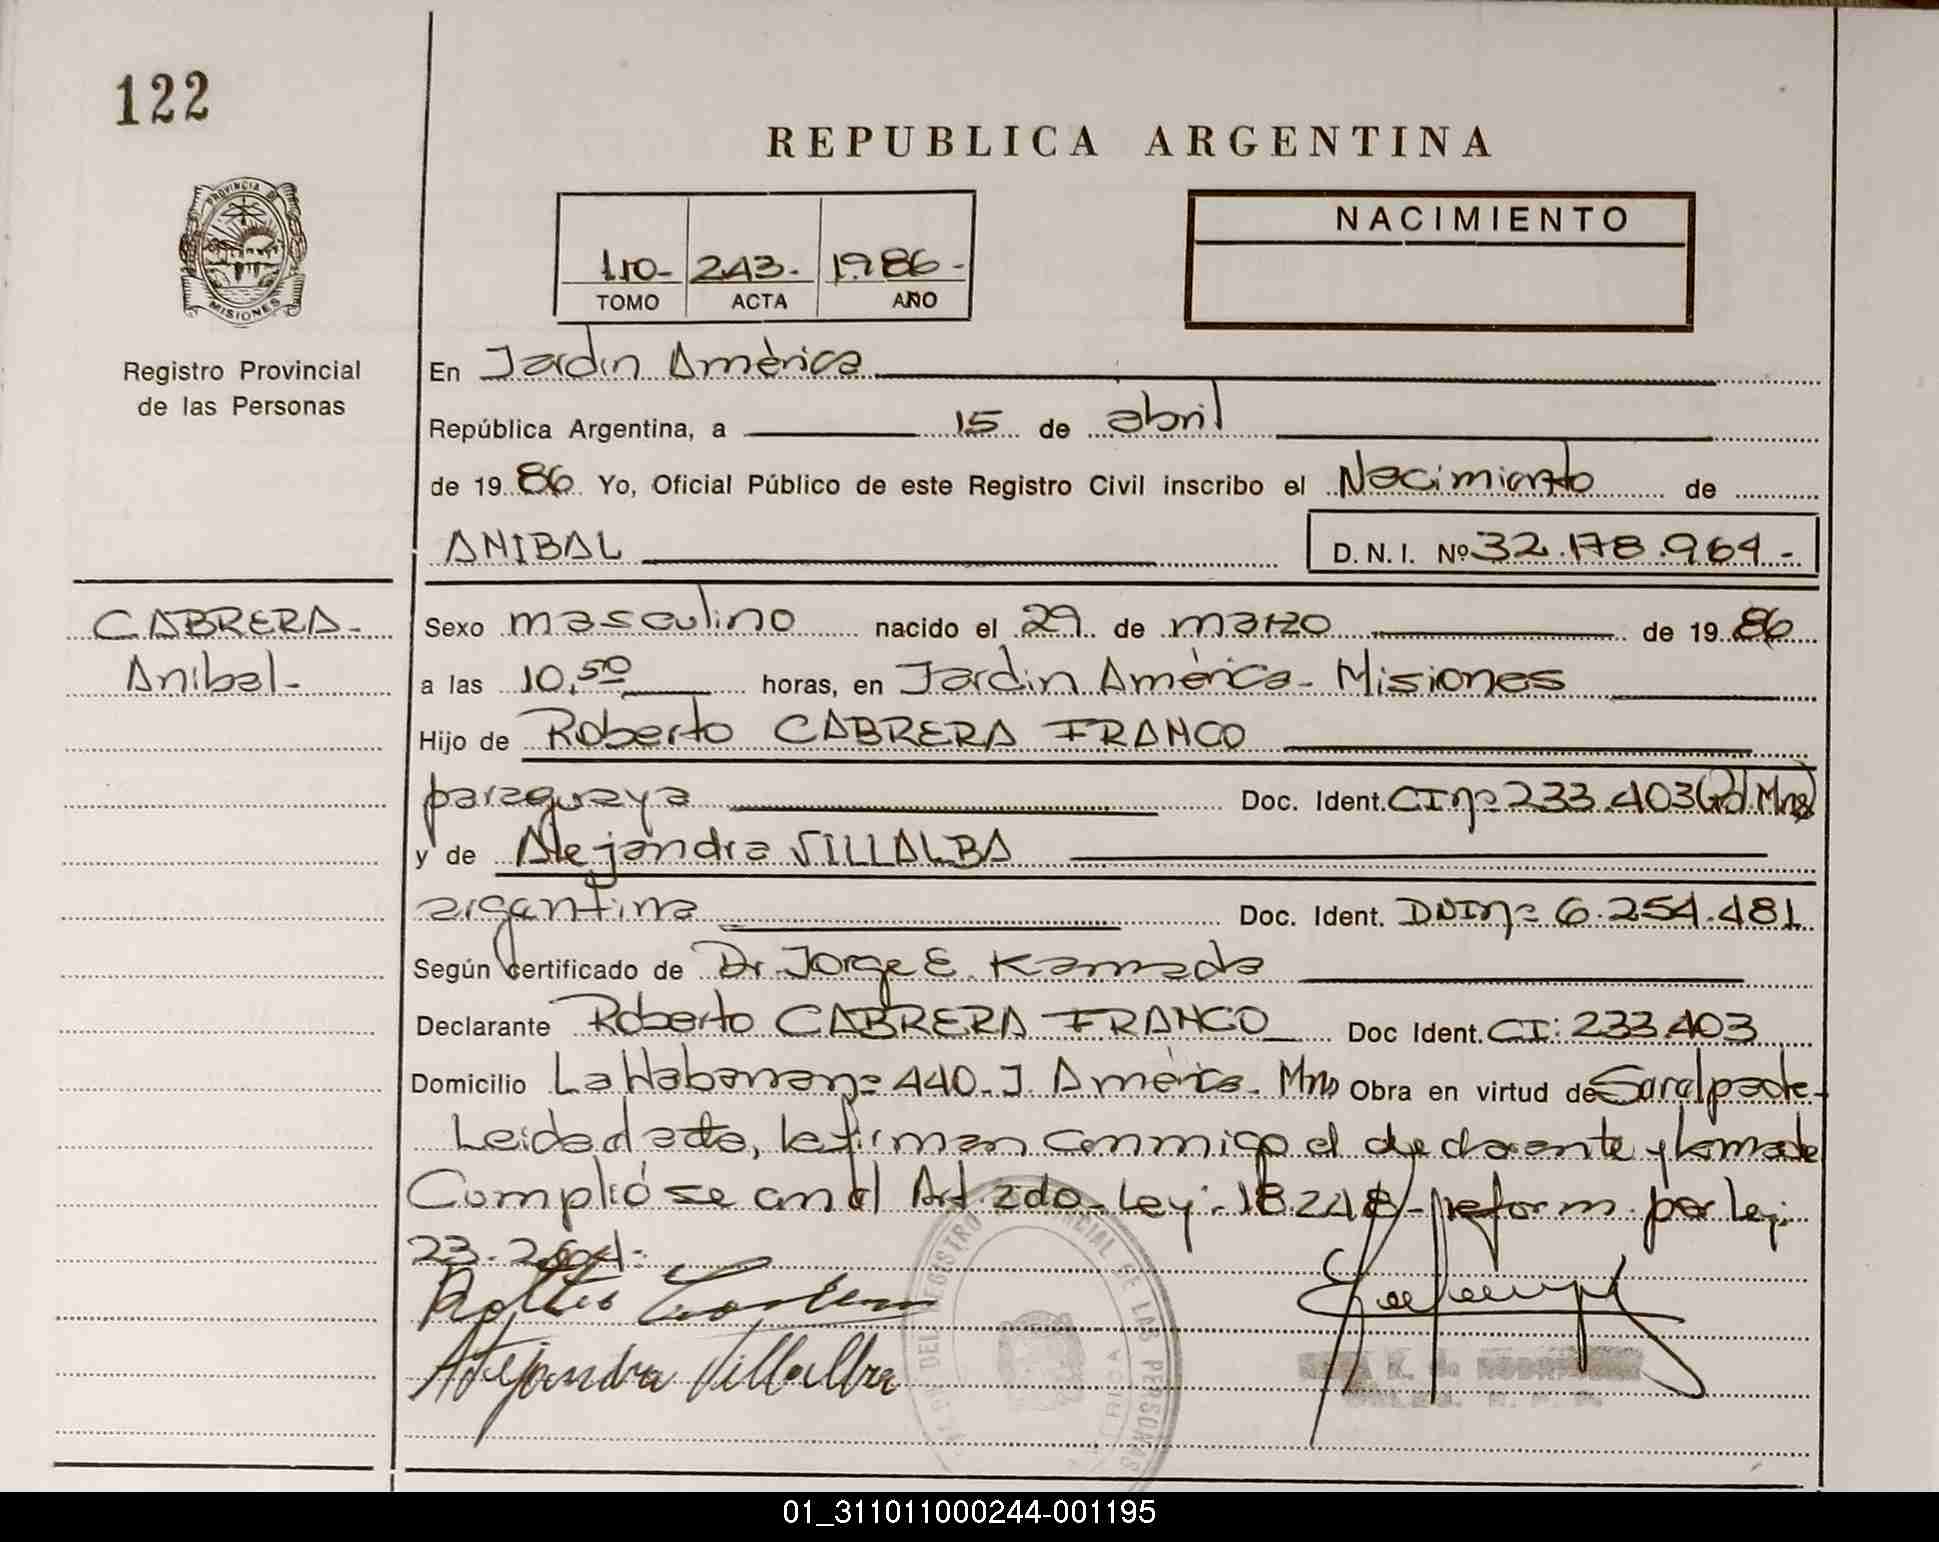 122
REPUBLICA ARGENTINA
PROVINCIA DE
MISIONES
Registro Provincial
de las Personas
1ro- 243- 1986-
TOMO ACTA AÑO
NACIMIENTO
En Jardin América
República Argentina, a 15 de abril
de 1986 Yo, Oficial Público de este Registro Civil inscribo el Nacimiento de
ANIBAL D.N.I. Nº 32.178.964-
CABRERA-
Anibal-
Sexo masculino nacido el 29 de marzo de 1986
a las 10,50 horas, en Jardin América- Misiones
Hijo de Roberto CABRERA FRANCO
paraguaya Doc. Ident. CI nº 233.403 (Pol Mns)
y de Alejandra VILLALBA
argentina Doc. Ident. DNI nº 6.254.481
Según certificado de Dr. Jorge E. Kamada
Declarante Roberto CABRERA FRANCO Doc Ident. CI: 233.403
Domicilio La Habana nº 440-J. América- Mns Obra en virtud de
Leida el acta, la firman conmigo el declarante y la madre
Cumplióse con el Art. 2do- Ley: 18.248- reform por ley:
23.264-
Alejandra Villalba
DEL REGISTRO PROVINCIAL DE LAS PERSONAS
01_311011000244-001195